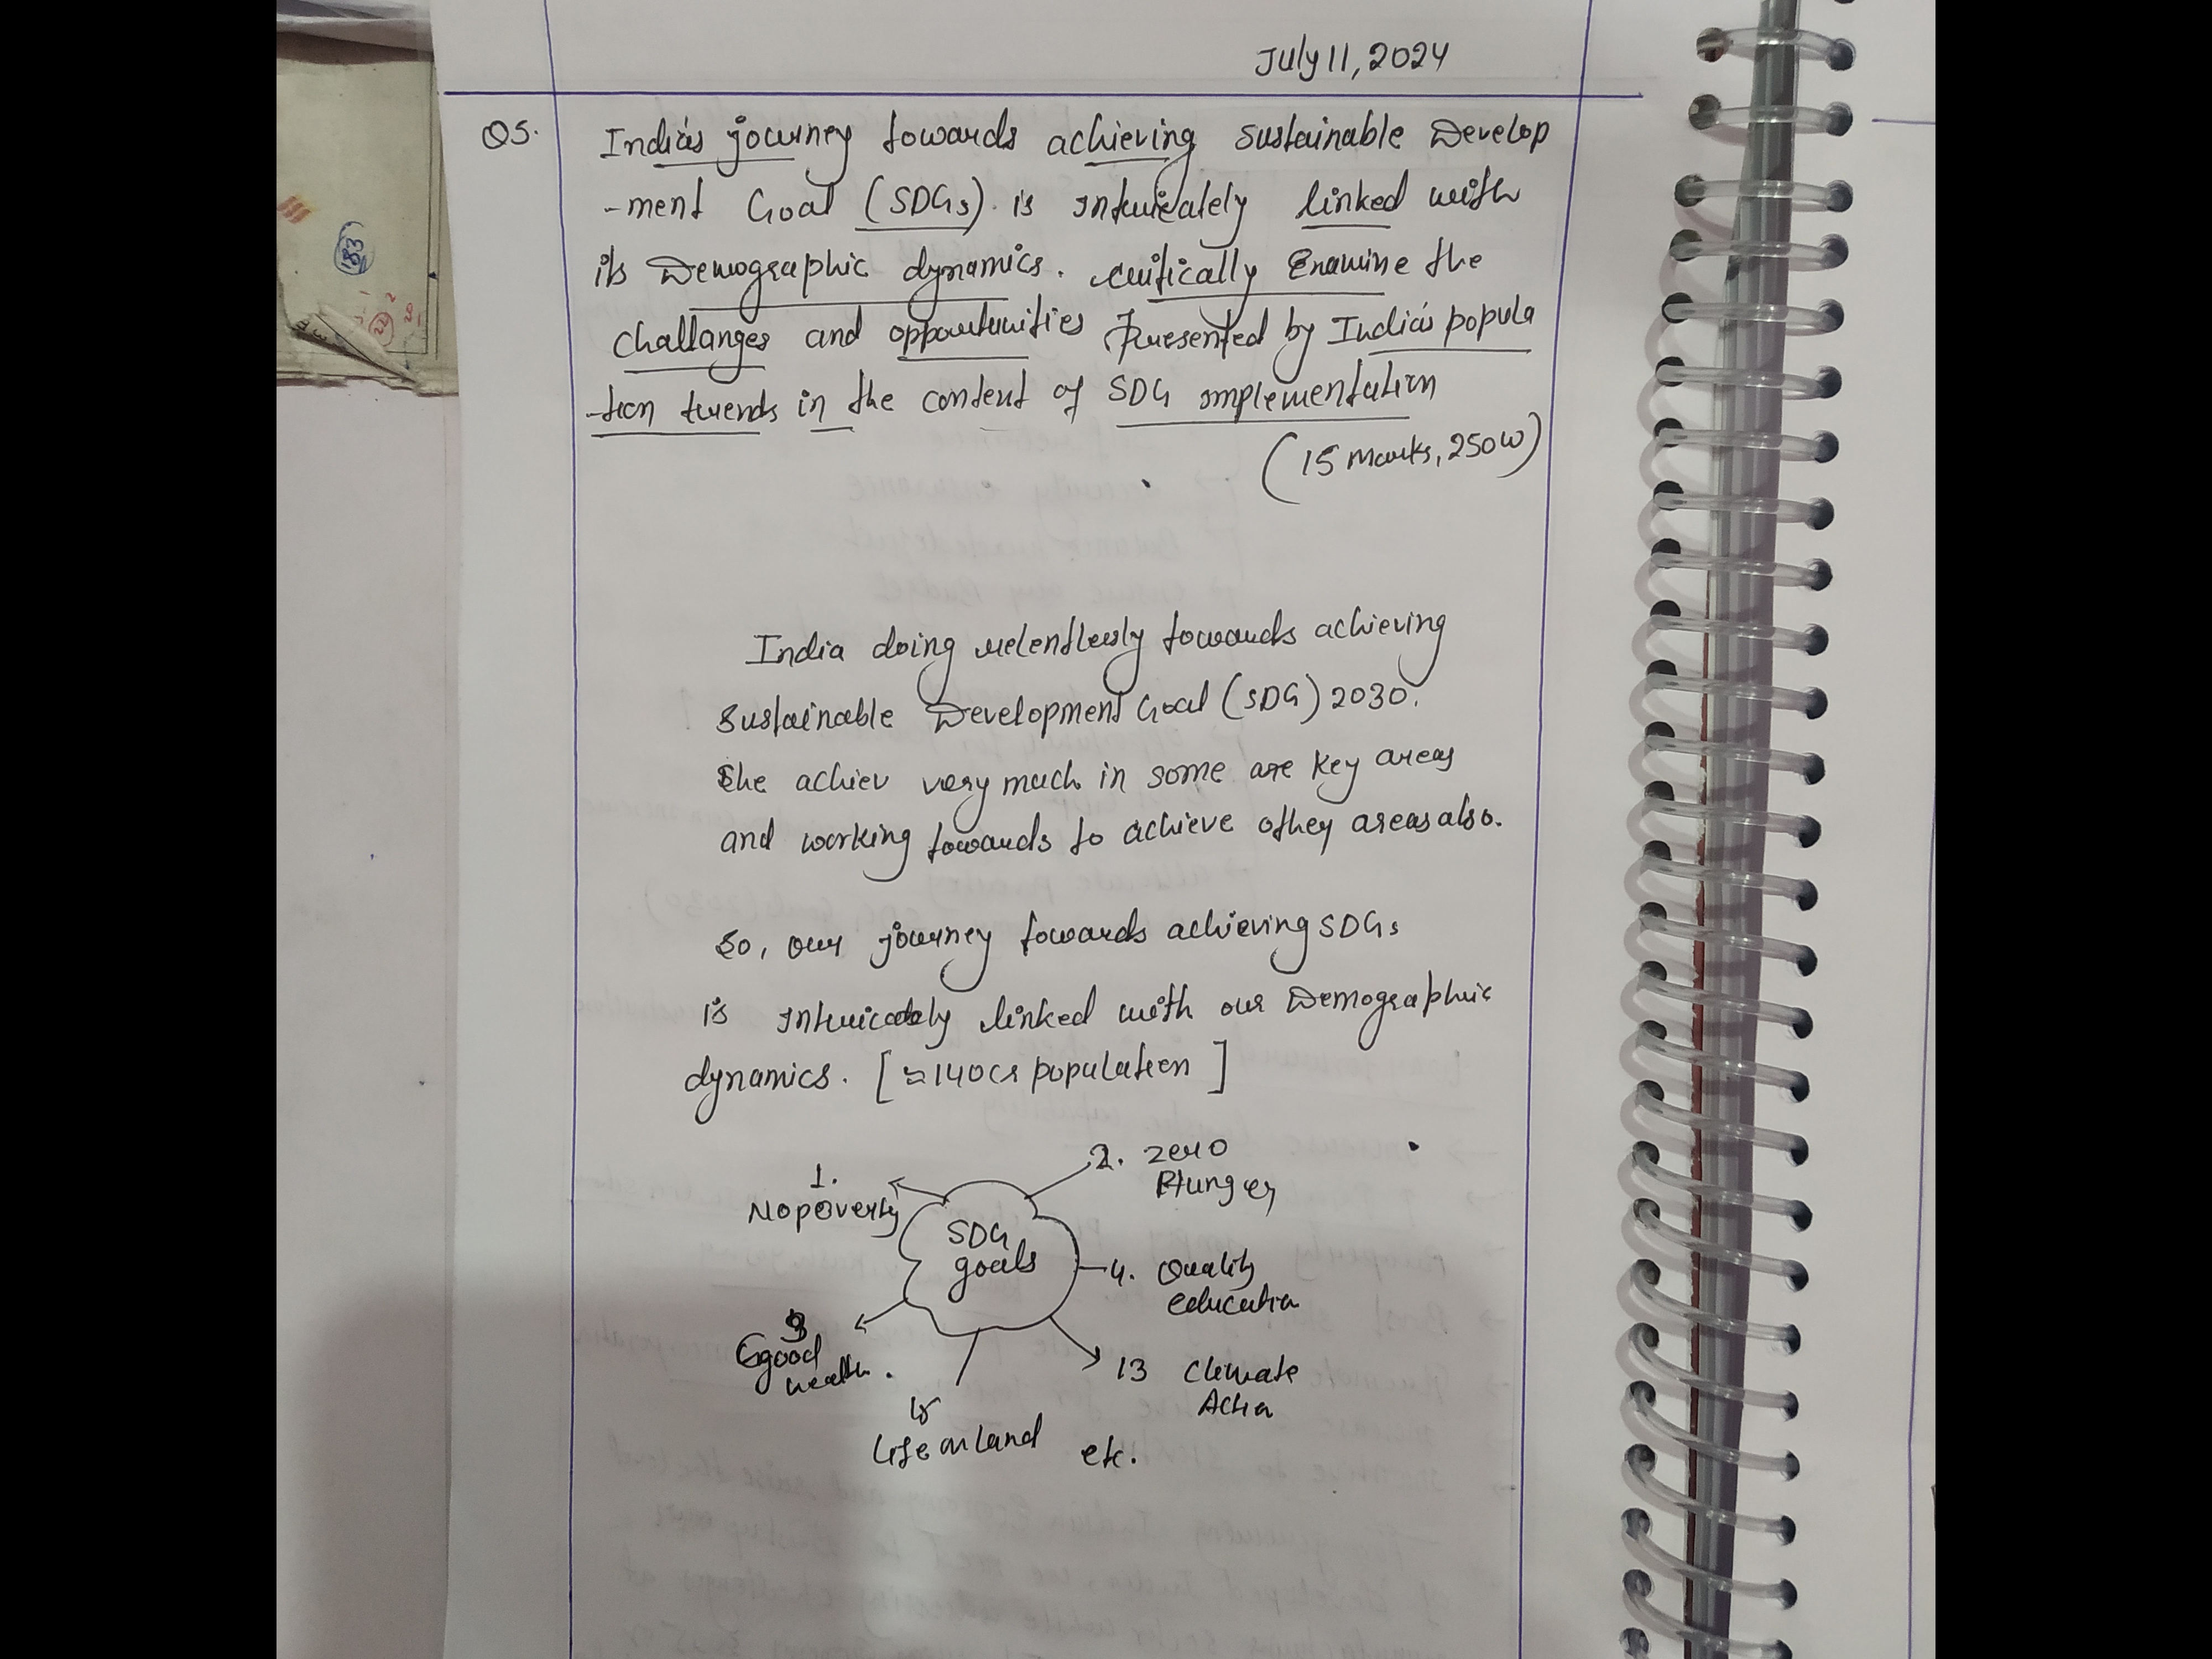 July 11, 2024
Q5.
India's journey towards achieving Sustainable Develop
-ment Goal (SDGs) is intricately linked with
its Demographic dynamics. critically Examine the
challanges and opportunities Presented by India's popula
-tion trends in the context of SDG implementation
(15 Marks, 250W)
India doing relentlessly towards achieving
Sustainable Development Goal (SDG) 2030.
She achiev very much in some are key areas
and working towards to achieve other areas also.
So, our journey towards achieving SDGs
is intricately linked with our Demographic
dynamics. [≈140cr population]
SDG
goals
1.
No poverty
2. Zero
Hunger
4. Quality
education
13 Climate
Action
15
Life on land
etc.
3
Good
health.
183
22
2
20